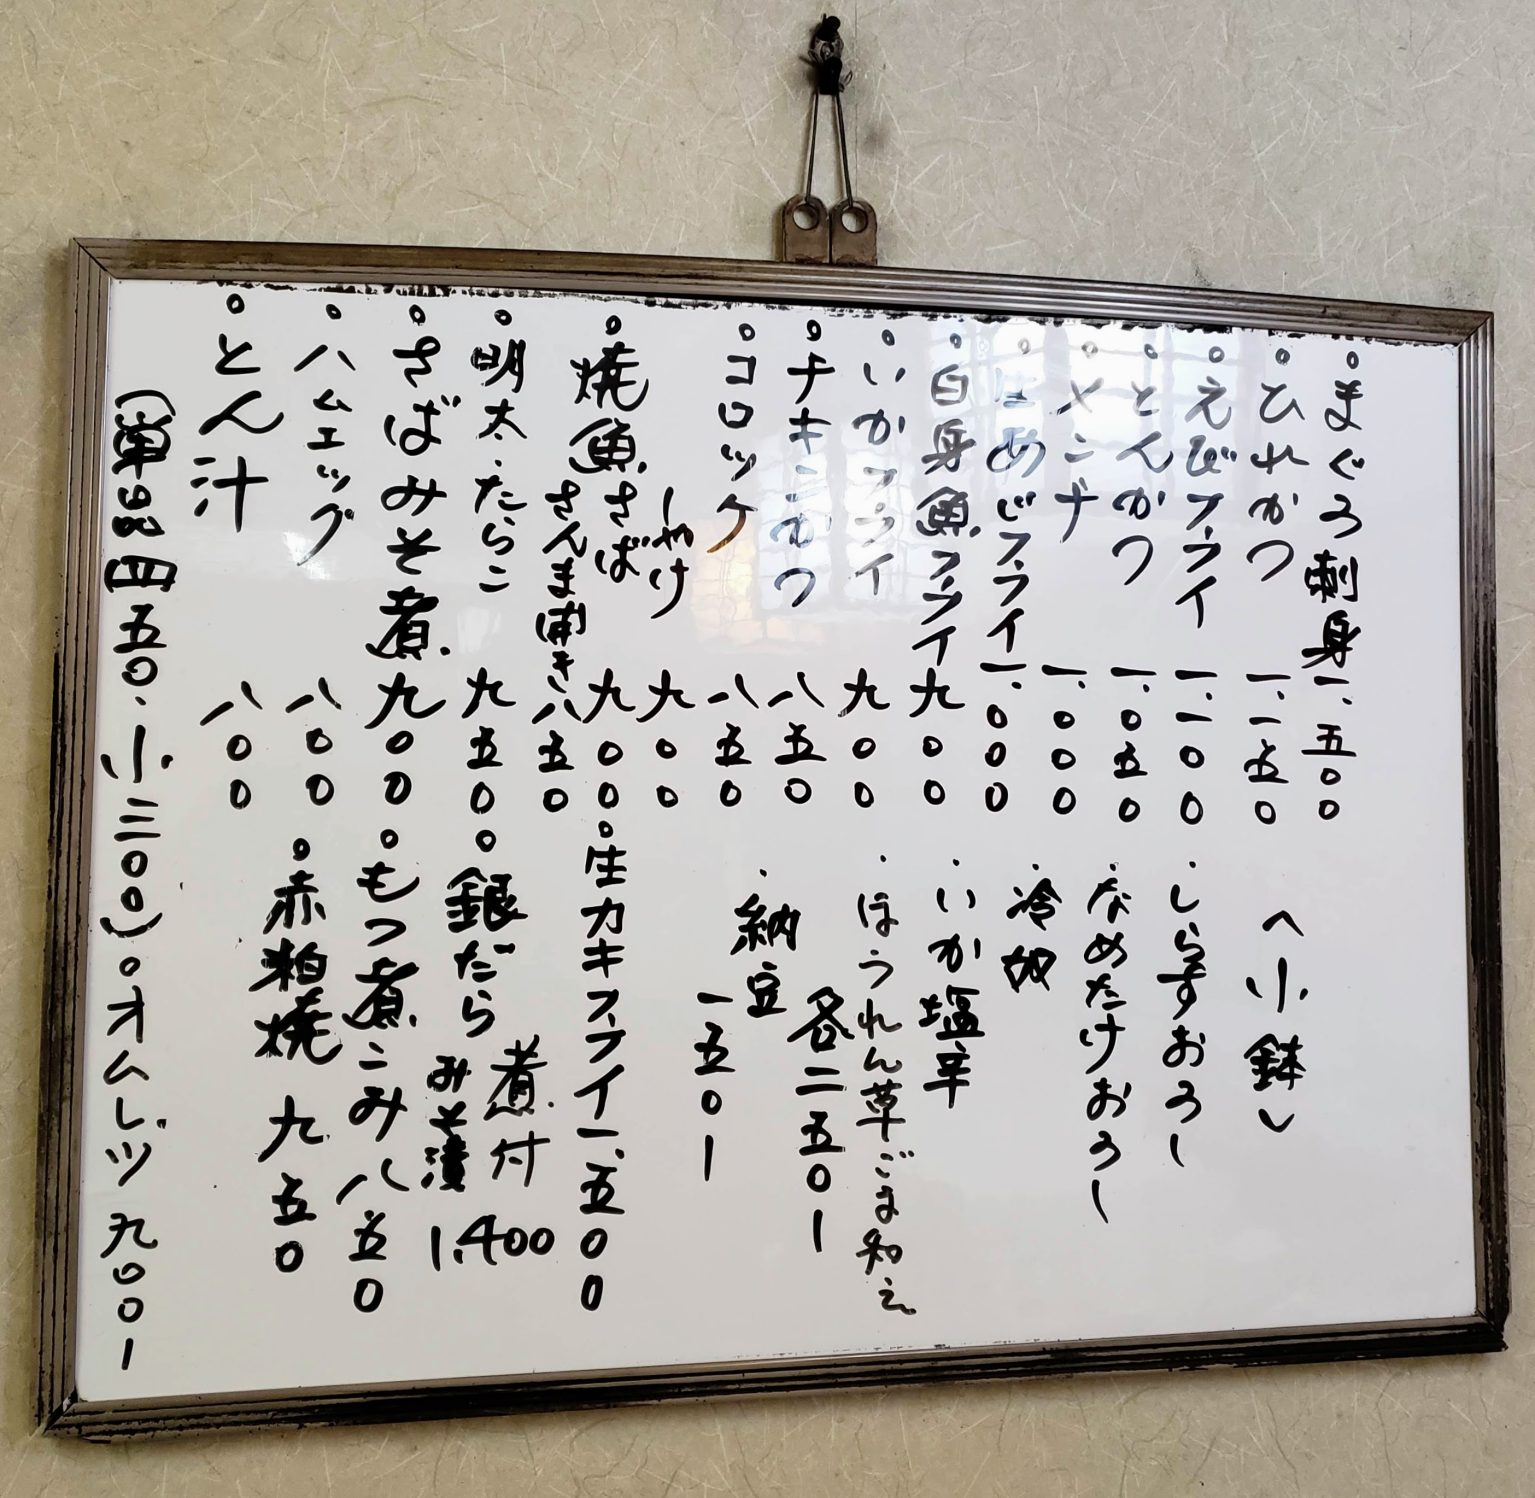 。まぐろ刺身一、五〇〇
。ひれかつ 一、一五〇
。えびフライ 一、一〇〇
。とんかつ 一、〇五〇
。メンチ 一、〇〇〇
。はめじフライ一、〇〇〇
。白身魚フライ九〇〇
。いかフライ 九〇〇
。チキンかつ 八五〇
。コロッケ 八五〇
。焼魚 しゃけ 九〇〇
さば 九〇〇
さんま開き 八五〇
。明太、たらこ 九五〇
。さばみそ煮 九〇〇
。ハムエッグ 八〇〇
。とん汁 八〇〇
(単品四五〇、小三〇〇)
へ小鉢し
・しらすおろし
・なめたけおろし
・冷奴
・いか塩辛
・ほうれん草ごま和え
各二五〇ー
・納豆
一五〇ー
。生カキフライ一、五〇〇
。銀だら 煮付
みそ漬 1,400
。もつ煮こみ 八五〇
。赤粕焼 九五〇
。オムレツ 九〇〇ー